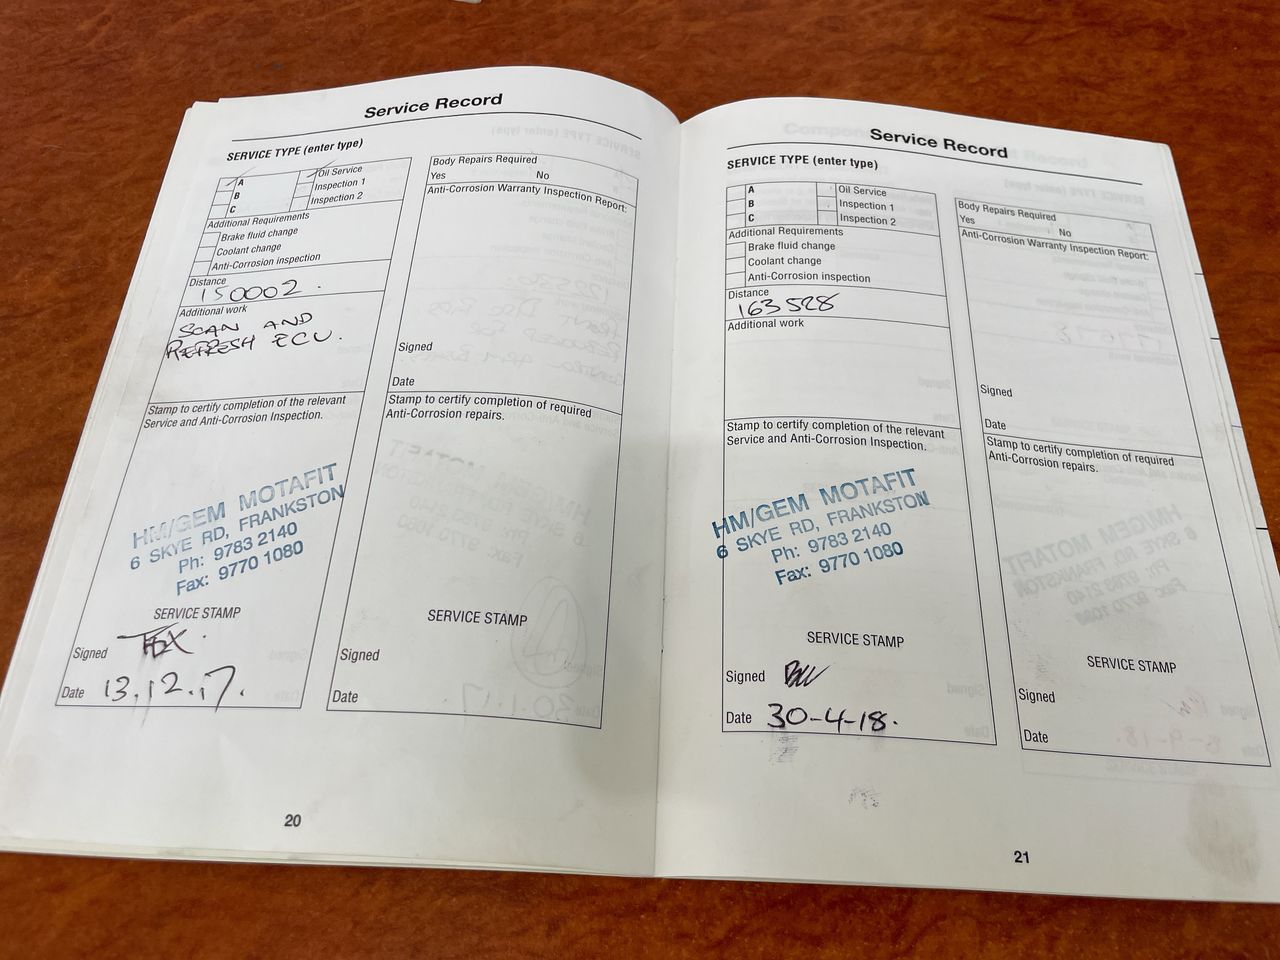 Service Record
SERVICE TYPE (enter type)
A
B
C
Oil Service
Inspection 1
Inspection 2
Additional Requirements
Brake fluid change
Coolant change
Anti-Corrosion inspection
Distance
150002.
Additional work
SCAN AND
REFRESH ECU.
Stamp to certify completion of the relevant
Service and Anti-Corrosion Inspection.
HM/GEM MOTAFIT
6 SKYE RD, FRANKSTON
Ph: 9783 2140
Fax: 9770 1080
SERVICE STAMP
Signed
Date 13.12.17.
Body Repairs Required
Yes No
Anti-Corrosion Warranty Inspection Report:
Signed
Date
Stamp to certify completion of required
Anti-Corrosion repairs.
SERVICE STAMP
Signed
Date
20
Service Record
SERVICE TYPE (enter type)
A
B
C
Oil Service
Inspection 1
Inspection 2
Additional Requirements
Brake fluid change
Coolant change
Anti-Corrosion inspection
Distance
163528
Additional work
Stamp to certify completion of the relevant
Service and Anti-Corrosion Inspection.
HM/GEM MOTAFIT
6 SKYE RD, FRANKSTON
Ph: 9783 2140
Fax: 9770 1080
SERVICE STAMP
Signed
Date 30-4-18.
Body Repairs Required
Yes No
Anti-Corrosion Warranty Inspection Report:
Signed
Date
Stamp to certify completion of required
Anti-Corrosion repairs.
SERVICE STAMP
Signed
Date
21